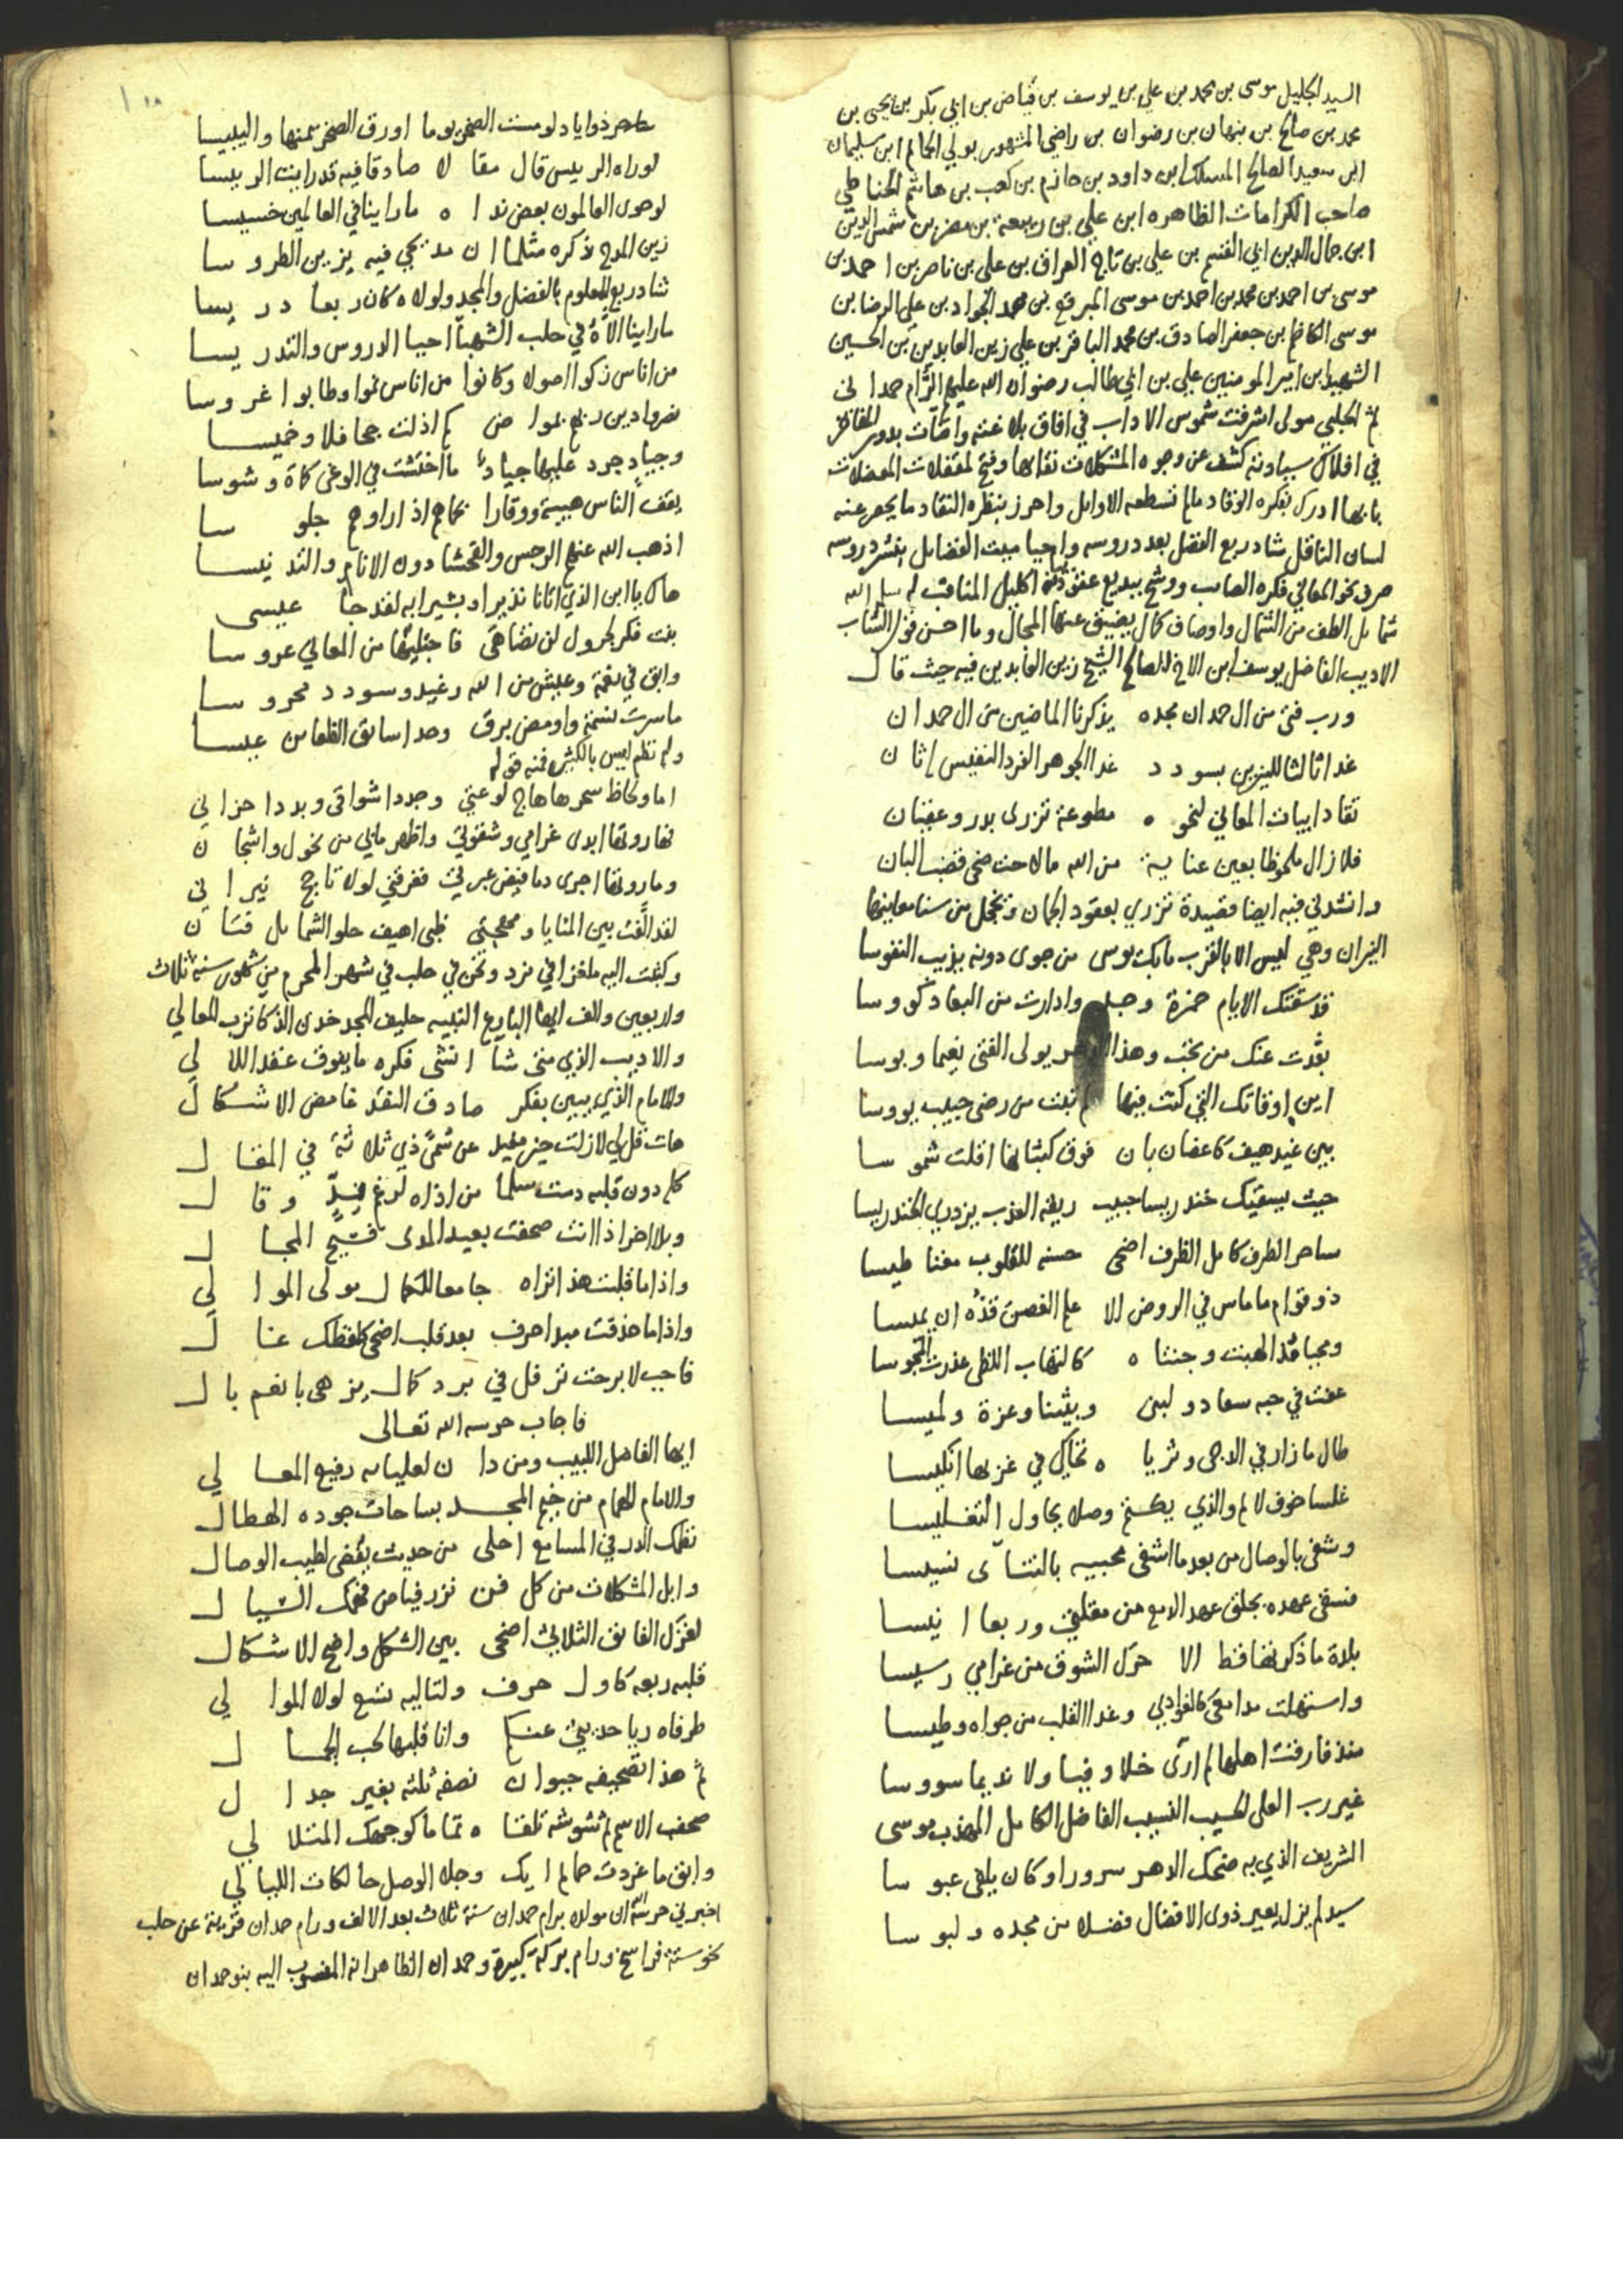 السيد الجليل موسى بن محمد بن علي بن يوسف بن قياض بن ابي بكر بن يحيى بن
محمد بن صالح بن بنهان بن رضوان بن راضي المشهور بولي الحمام ابن سليمان
ابن سعيد الصالح المسلك ابن داود بن حازم بن كعب بن هاشم الحناطي
صاحب الكرامات الظاهره ابن علي بن ربيعة بن مضر بن شمس الدين
ابن جمال الدين ابي القسم بن علي بن تاج العراف بن علي بن ناصر بن احمد بن
موسى بن احمد بن محمد بن احمد بن موسى المبرقع بن محمد الجواد بن علي الرضا بن
موسى الكاظم بن جعفر الصادق بن محمد الباقر بن علي زين العابدين بن الحسين
الشهيد ابن امير المومنين علي بن ابي طالب رضوان الله عليهم الرام حمداني
ثم الحلبي مولى اشرقت شموس الاداب في افاق بلاغته واضآت بدور المفاخر
في افلاك سيادته كشف عن وجوه المشكلات نقابها وفتح لمقفلات المعضلات
بابها ادرك بفكره الوقاد مالم تسطعه الاوايل واحرز بنظره النقاد ما يحصر عنه
لسان الناقل شاد ربع الفضل بعد دروسه واحيا ميت الفضايل بنشر دروسه
صرف نحو المعالي فكره الصايب ووشح ببديع اكليل المناقب له سلم الله
شمايل الطف من الشمال واوصاف كمال يضيق عنها المجال وما احسن قول الشاب
الاديب الفاضل يوسف ابن الاخ الصالح الشيخ زين العابدين فيه حيث قال
ورب فتى من ال حمدان مجده يذكرنا الماضين من ال حمدان
غدا ثالثا للنيرين بسودد غدا الجوهر الفرد النفيس اثان
تقاد ابيات المعاني لنحوه مطوعة تزرى بدر وعقيان
فلا زال ملحوظا بعين عناية من الله مالاحت ضحى قضب البان
وانشدني فيه ايضا قصيدة تزري بعقود الجمان وتخجل من سنا معاينها
النيران وهي ليس الا بالقرب مابك يوسى من جوى دونه يذيب النفوسا
قد سقتك الايام خمرة وجد وادارت من البعاد كووسا
بعدت عنك من تحب وهذا الدهر يولى الفتى نعيما وبوسا
اين اوقاتك التي كنت فيها من رضى حبيب يووسا
بين غيد هيف كاغصان بان فوق كثبانها اقلت شموسا
حيث يسقيك خندريسا حبيب ريقه العذب يزدري الخندريسا
ساحر الطرف كامل الظرف اضحى حسنه للقلوب مغناطيسا
ذو قوام ماماس في الروض الا علم الغصن قده ان يميسا
ومحيا قد الهبت وجنتاه كالتهاب اللظى عذرت المجوسا
عفت في حبه سعاد ولبنى وبثينا وعزة ولميسا
طال مازارني الدجى وثرياه تحاكي في غربها انكيسا
غلسا خوف لايم والذي يكتم وصلا يحاول التغليسا
وشفى بالوصال من بعد ما اشفى محبيه بالتنآى نسيسا
فسقى عهده بجلق عهد الدمع من مقلتي وربعا انيسا
بلدة ما ذكرتها قط الا حرك الشوق من غرامي رسيسا
واستهلت مدامعي كالغوادي وغدا القلب من جواه وطيسا
منذ فارقت اهلها لم ارى خلا وفيا ولا نديما سووسا
غير رب العلى الحسيب النسيب الفاضل الكامل المهذب موسى
الشريف الذي به ضحك الدهر سرورا وكان يلقى عبوسا
سيد لم يزل يعير ذوى الافضال فضلا من مجده ولبوسا
طاهر ذو اياد لو مست الصخر يوما اورق الصخر منها واليبيسا
لوراه الرييس قال مقالا صادقا فيه قد رايت الرييسا
لو حوى العالمون بعض نداه مارايينا في العالمين خسيسا
زين المدح ذكره مثلما ان مديحي فيه يزين الطروسا
شاد ربع العلوم بالفضل والمجد ولولاه كان ربعا دريسا
ماراينا الاه في حلب الشهبآ احيا الدروس والتدريسا
من اناس زكوا اصولا وكانوا من اناس نموا وطابوا غروسا
نصروا دين ربهم بمواض كم اذلت جحافلا وخميسا
وجياد جرد عليها جياد ما اختشت في الوغى كماة وشوسا
يقف الناس هيبة ووقارا تجاههم اذا راوهم جلوسا
اذهب الله عنهم الرجس والفحشا دون الانام والتدنيسا
هاك يا ابن الذي اتانا نذيرا وبشيرا به لقد جآ عيسى
بنت فكر لجرول لن تضاهى فاجتليها من المعالي عروسا
وابق في نعمة وعيش من الله رغيد وسودد محروسا
ماسرت نسمة واومض برق وحدا سايق الظعاين عيسا
وله نظم ليس بالكثير فمنه قوله
اما ولحاظ سحرها هاج لوعتي وجدد اشواقي وبدد احزاني
لقد الفت بين المنايا ومهجتي ظبى اهيف حلو الشمايل فتان
وكتبت اليه ملغزا في نرد ونحن في حلب في شهر المحرم من شهور سنة ثلاث
واربعين والف ايها البارع النبيه حليف المجد خدن الذكا ترب المعالي
والاديب الذي متى شآ انشى فكره ما يفوق عقد اللالي
والامام الذي يبين بفكر صادق النقد غامض الاشكال
هات قل لي لازلت خير مفيد عن مسمى ذي ثلاثة في المقال
كله دون قلبه دمت سلما من اذاه لرغم وقال
وبلا اخر اذا انت صحفت بعيد المدى فسيح المجال
واذا ما قلبت هذا تراه جامعا للكمال مولى الموالي
واذا ما حذفت مبدا حرف بعد قلب اضحى كلفظك عال
فاجب لا برحت ترفل في برد كمال يزهى بانعم بال
فاجاب حرسه الله تعالى
ايها الفاضل اللبيب ومن دان لعليايه رفيع المعالي
والامام الهمام من خيم المجد بساحات جوده الهطال
نظمك الدر في المسامع احلى من حديث يقضى لطيب الوصال
وابل المشكلات من كل فن نزر فياض فهمك السيال
لغزك الفايق الثلاثي اضحى بين الشكل واضح الاشكال
قلبه ربعه كاول حرف ولتاليه تسع لولا الموالي
طرفاه ريا حديثي عنكم وانا قلبها لحب الجمال
ثم هذا تصحيفه حيوان نصفه ثلثه بغير جدال
صحف الاسم ثم شوشه تلقاه تماما كوجهك المتلالي
وابق ماغردت حمايم ايك وجلا الوصل حالكات الليالي
اخبرني حرسه الله ان مولده برام حمدان سنة ثلاث بعد الالف ورام حمدان قرية عن حلب
نحو ستة فراسخ ورام بركة كبيرة وحمدان الظاهر انه المنسوب اليه بنو حمدان